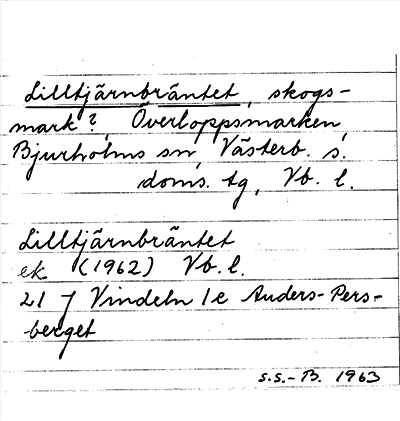 Lilltjärnbräntet, skogs-
mark?, Överloppsmarken,
Bjurholms sn, Västerb. s.
doms. tg, Vb. l.
Lilltjärnbräntet
ek (1962) Vb. l.
21 J Vindeln 1e Anders-Pers-
berget
S.S.-B. 1963